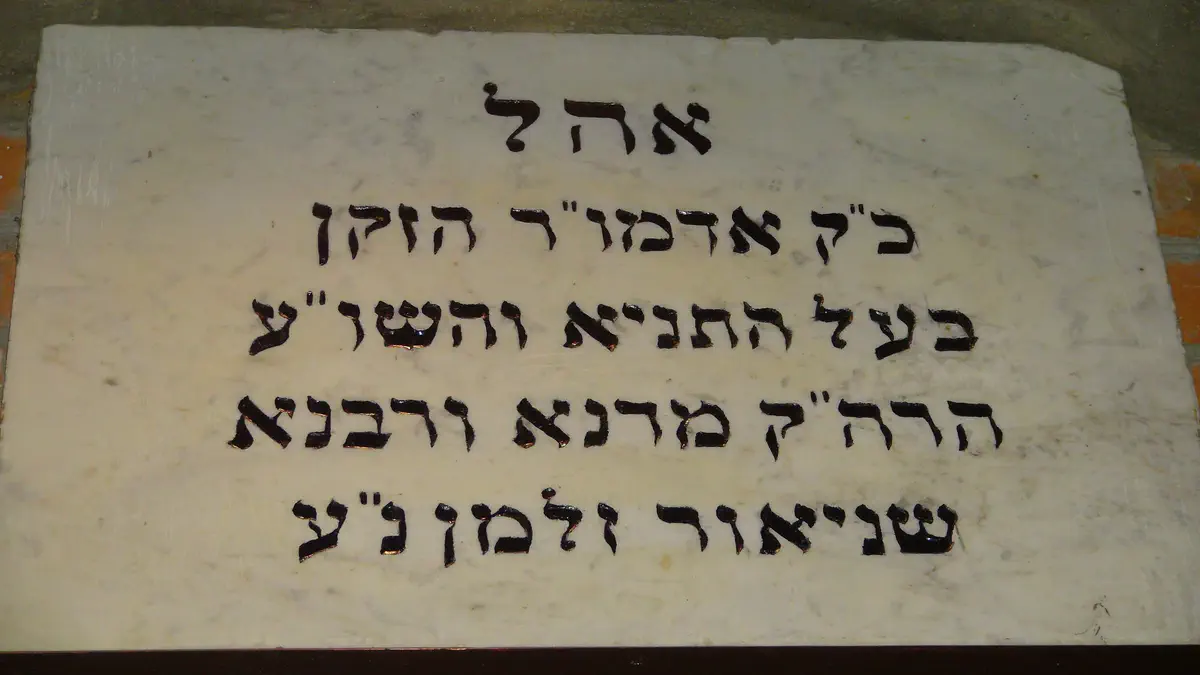 אהל
כ"ק אדמו"ר הזקן
בעל התניא והשו"ע
הרה"ק מרנא ורבנא
שניאור זלמן נ"ע